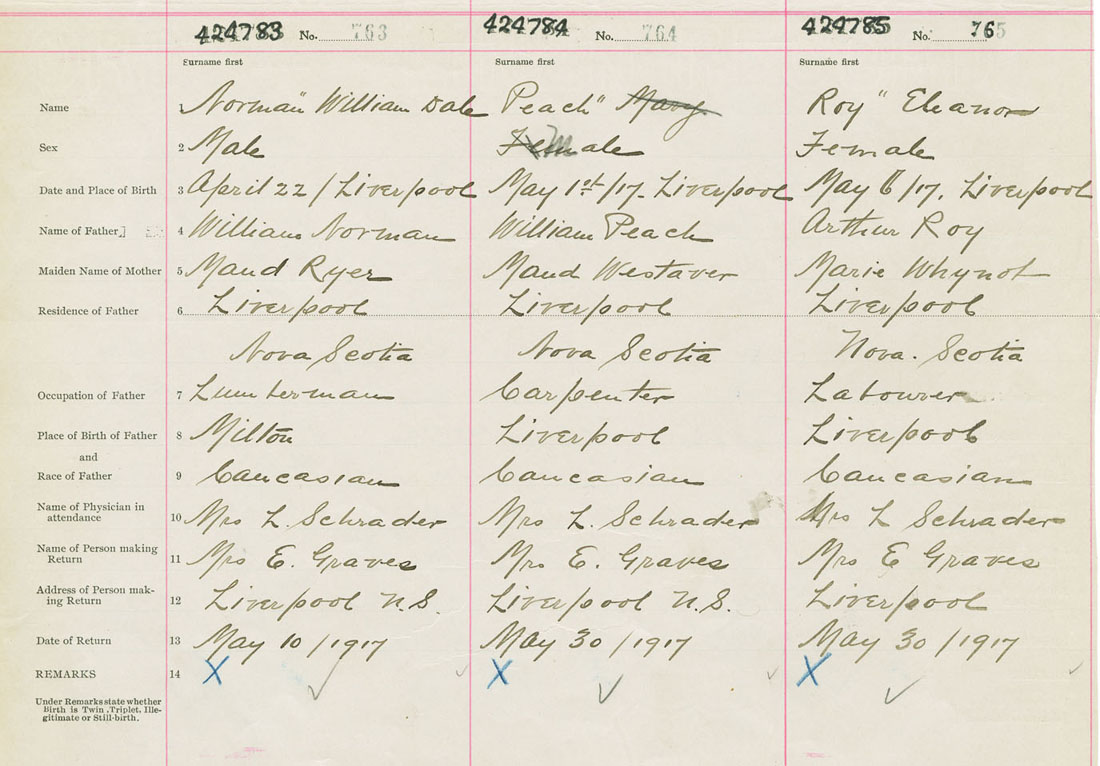 424783 No. 763 424784 No. 764 424785 No. 765
Surname first Surname first Surname first
Name 1 Norman" William Dale Peach" Mary Roy" Eleanor
Sex 2 Male Female M Female
Date and Place of Birth 3 April 22 / Liverpool May 1st/17- Liverpool May 6/17. Liverpool
Name of Father 4 William Norman William Peach Arthur Roy
Maiden Name of Mother 5 Maud Ryer Maud Westaver Marie Whynot
Residence of Father 6 Liverpool Liverpool Liverpool
Nova Scotia Nova Scotia Nova. Scotia
Occupation of Father 7 Lumberman Carpenter Labourer
Place of Birth of Father 8 Milton Liverpool Liverpool
and
Race of Father 9 Caucasian Caucasian Caucasian
Name of Physician in
attendance 10 Mrs L. Schrader Mrs L. Schrader Mrs L Schrader
Name of Person making
Return 11 Mrs E. Graves Mrs E. Graves Mrs E Graves
Address of Person mak-
ing Return 12 Liverpool N.S. Liverpool N.S. Liverpool
Date of Return 13 May 10/1917 May 30/1917 May 30/1917
REMARKS 14 X X X
Under Remarks state whether
Birth is Twin, Triplet, Ille-
gitimate or Still-birth.